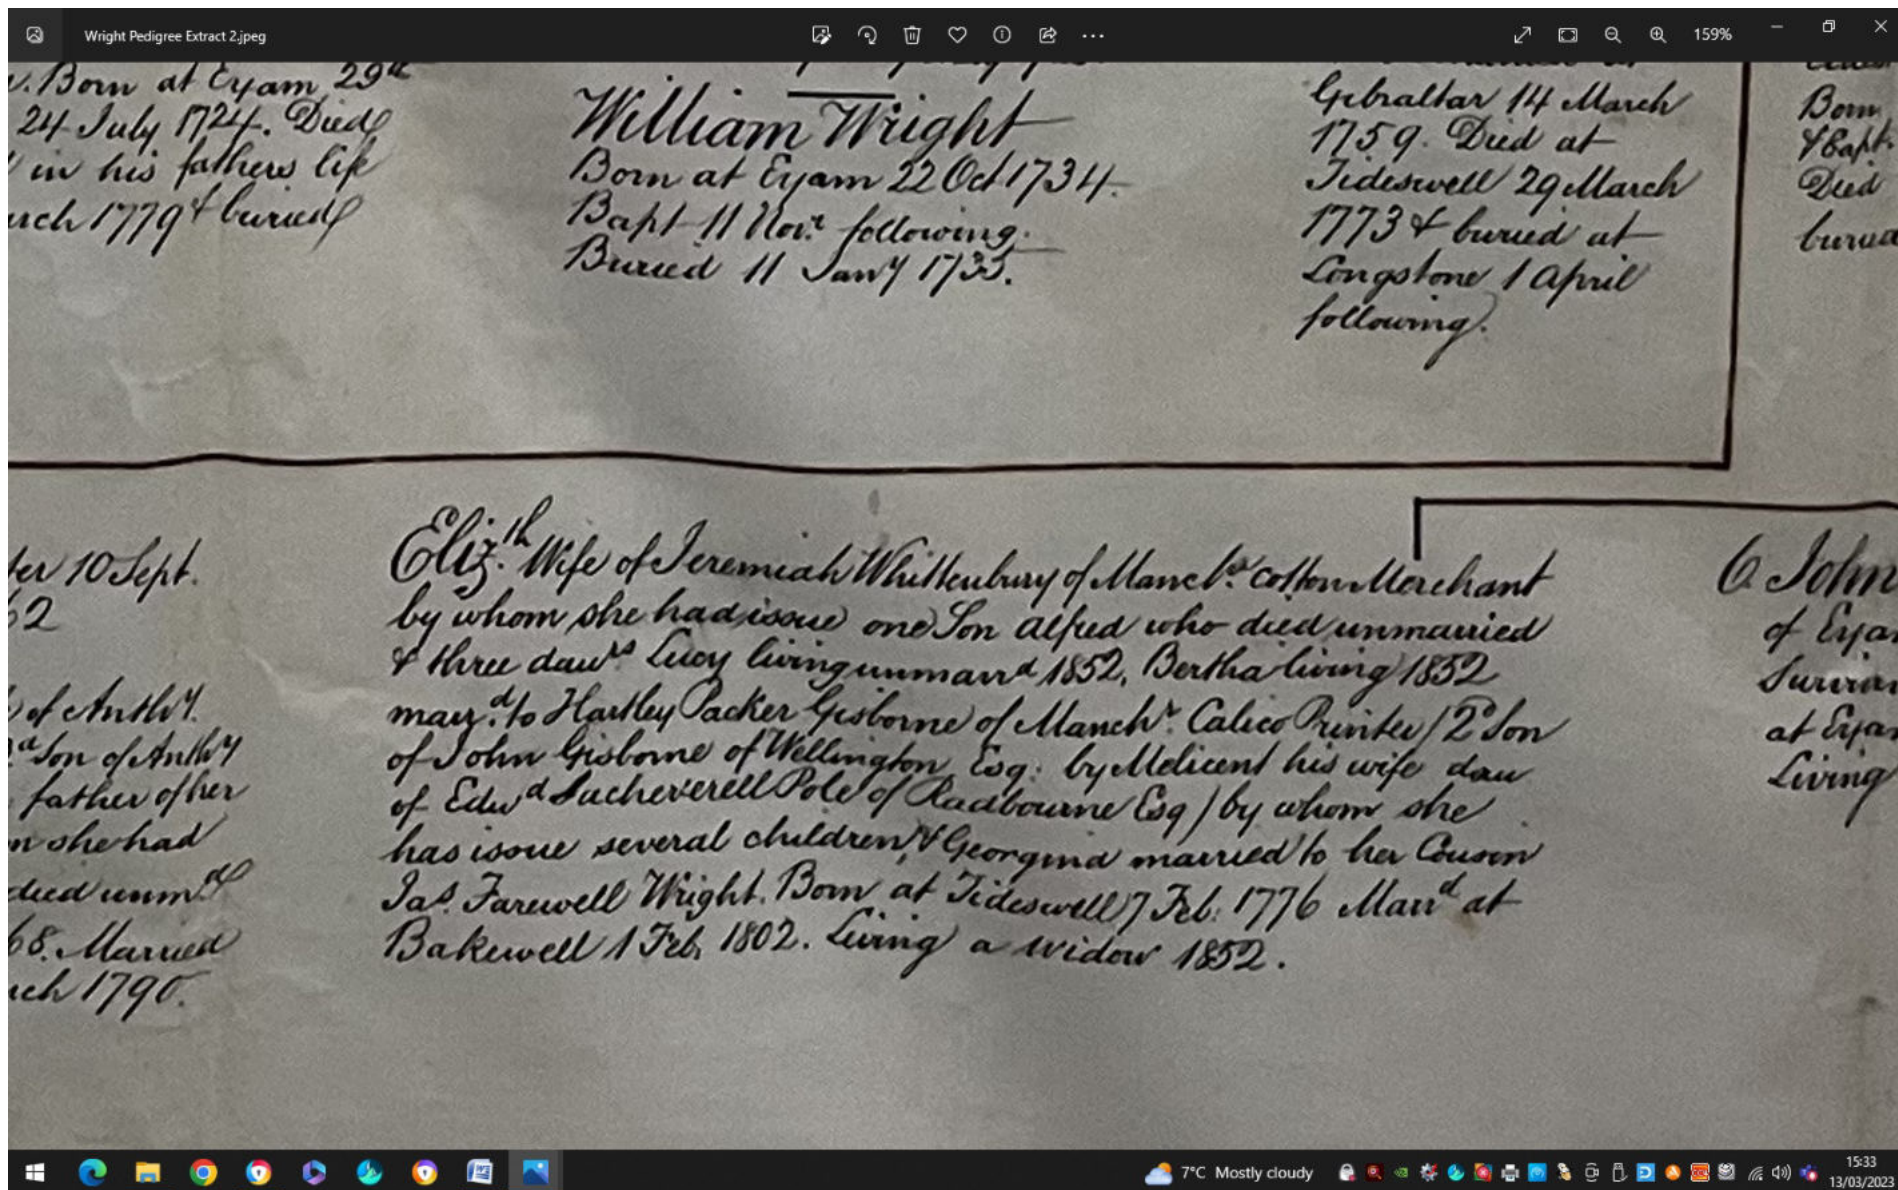 Wright Pedigree Extract 2.jpeg
159%
. Born at Eyam 29th
24 July 1724. Died
in his fathers life
rch 1779 & buried
William Wright
Born at Eyam 22 Oct 1734.
Bapt 11 Novr. following.
Buried 11 Jany 1735.
Gibraltar 14 March
1759. Died at
Tideswell 29 March
1773 & buried at
Longstone 1 April
following.
Born
& Bapt.
Died
buried
er 10 Sept.
2
of Anthy.
Son of Anthy
father of her
she had
died unmd
68. Married
rch 1790.
Elizth. Wife of Jeremiah Whittenbury of Manchr. Cotton Merchant
by whom she had issue one Son Alfred who died unmarried
& three daurs Lucy living unmarrd 1852, Bertha living 1852
marrd. to Hartley Packer Gisborne of Manchr. Calico Printer / 2d Son
of John Gisborne of Wellington Esq: by Melicent his wife dau
of Edwd Sacheverell Pole of Radbourne Esq / by whom she
has issue several children, & Georgina married to her Cousin
Jas. Farewell Wright. Born at Tideswell 7 Feb: 1776 Marrd at
Bakewell 1 Feb, 1802. Living a widow 1852.
6 John
of Eya
Surviv
at Eya
Living
7°C Mostly cloudy
15:33
13/03/2023